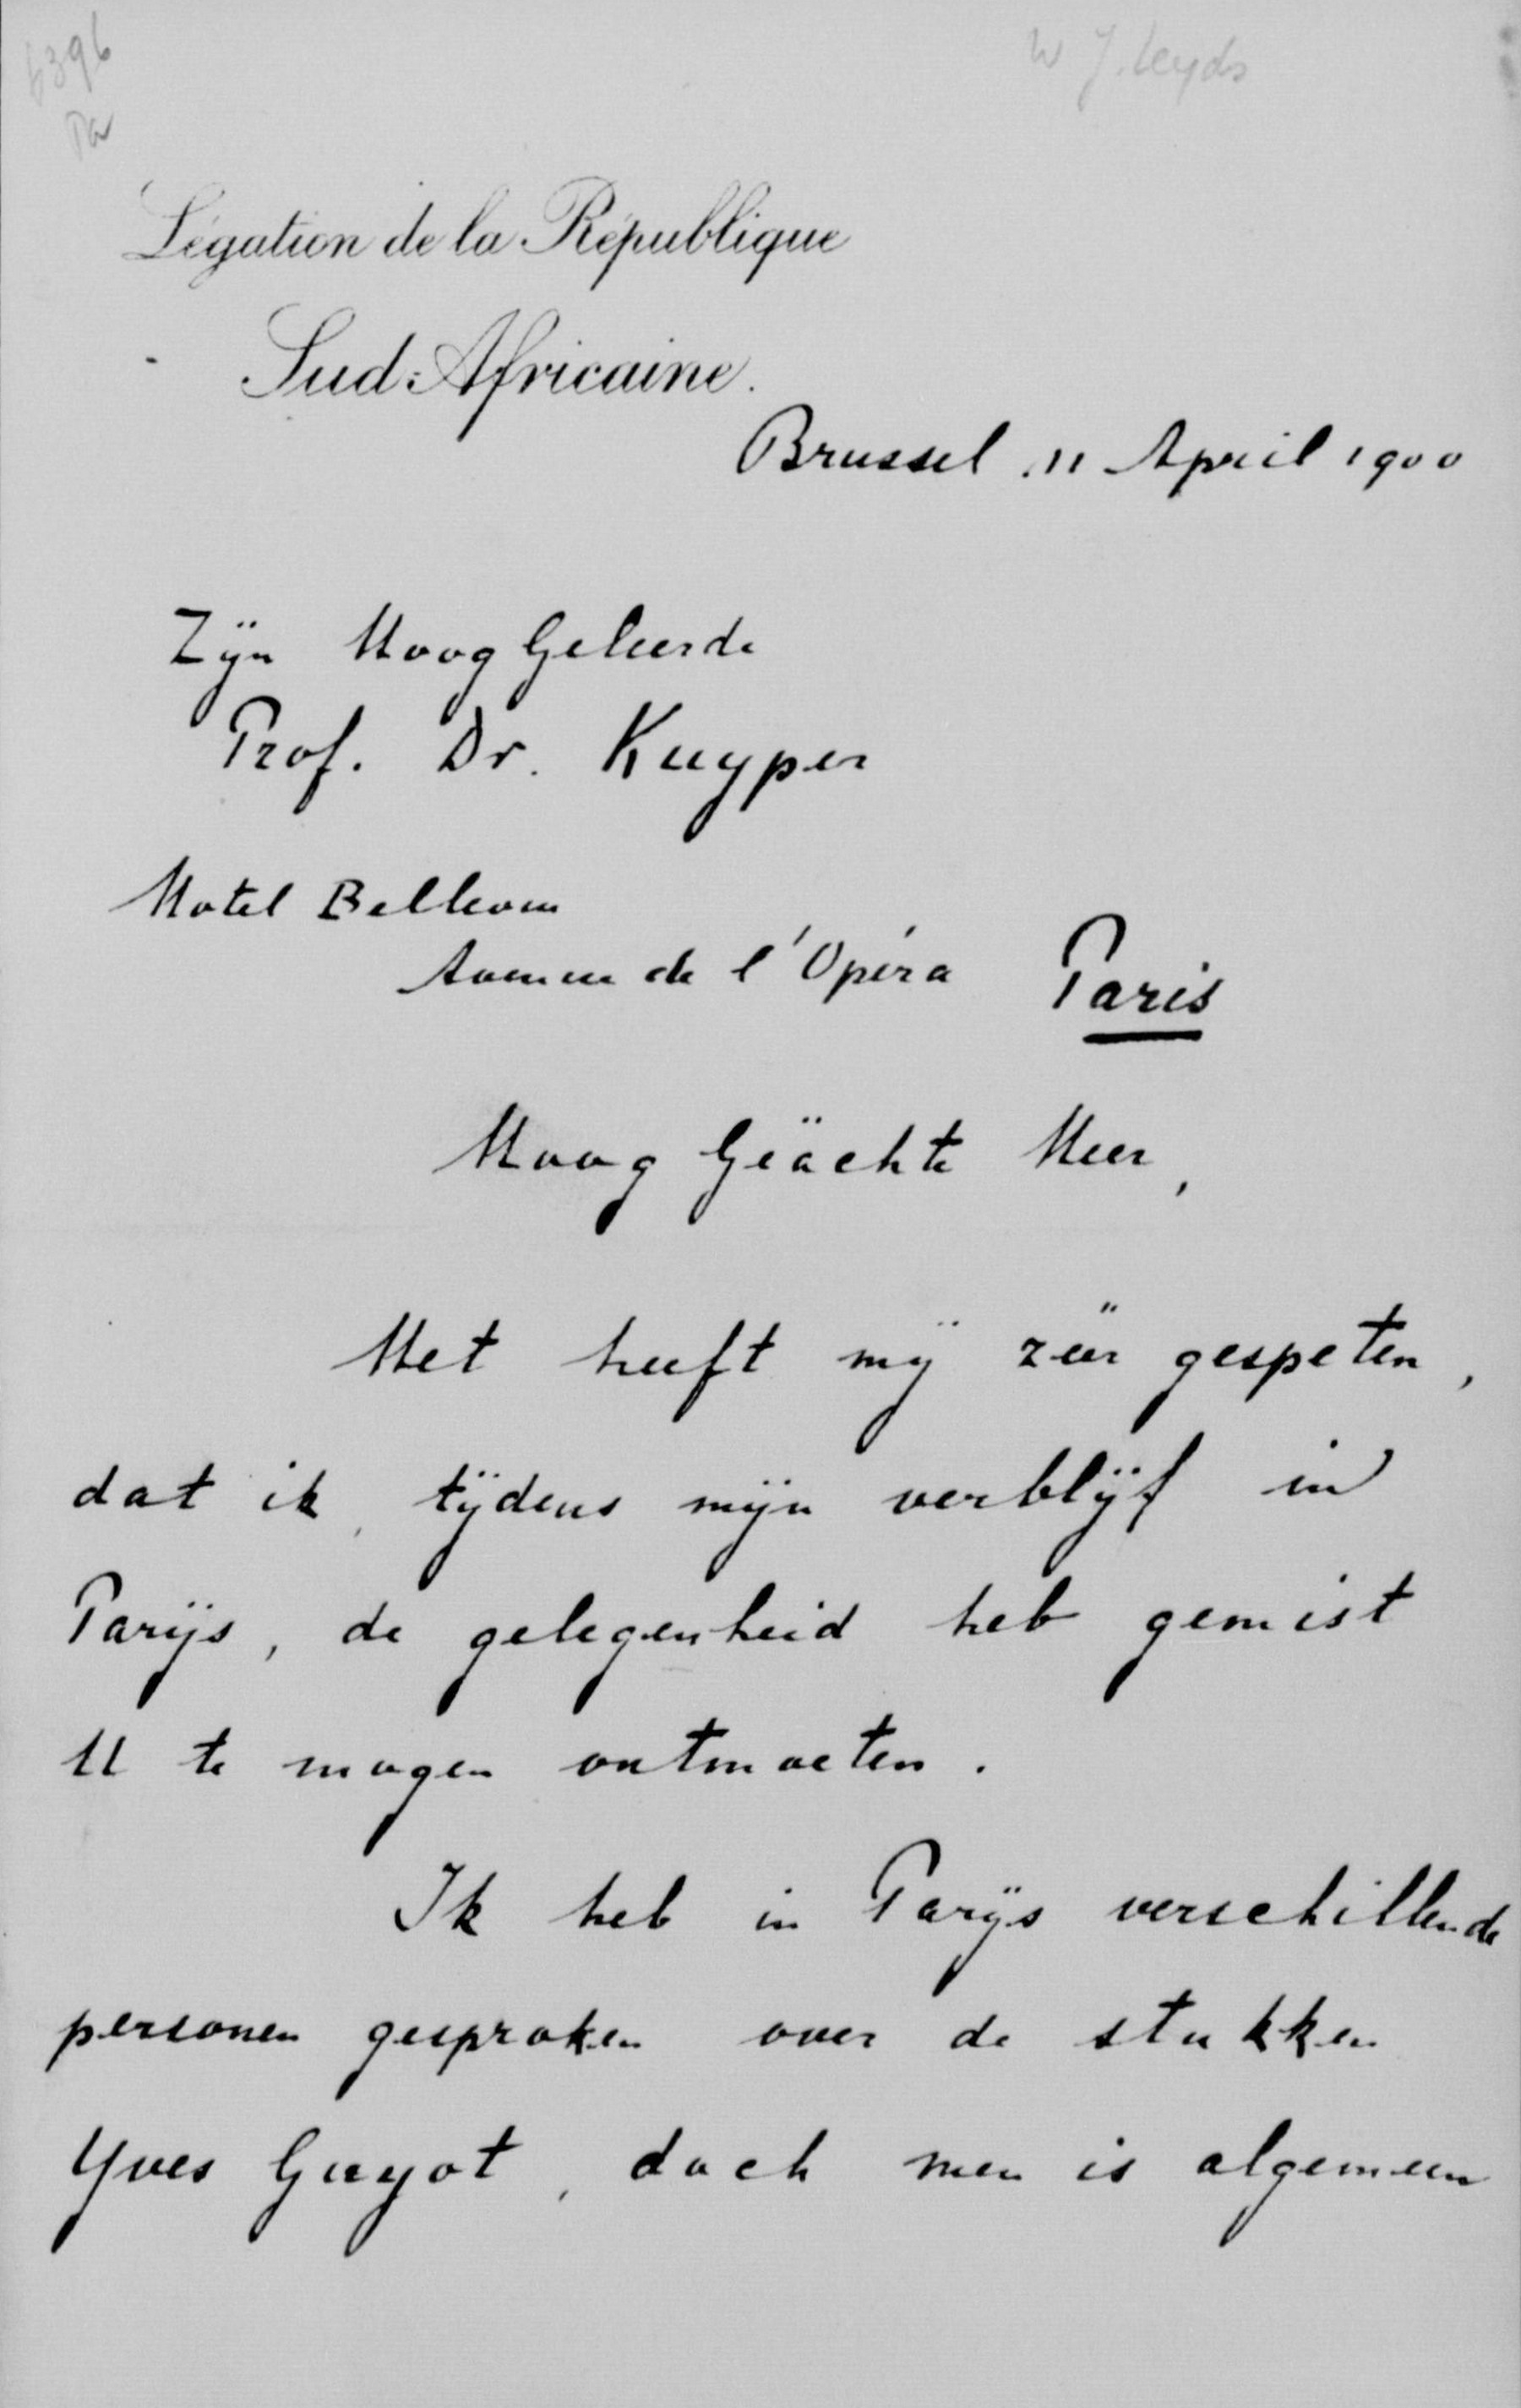 6396
W J. Leyds
Légation de la République
Sud-Africaine.
Brussel 11 April 1900
Zijn Hoog Geleerde
Prof. Dr. Kuyper
Hotel Bellevue
Avenue de l'Opéra Paris
Hoog Geächte Heer,
Het heeft mij zeer gespeten,
dat ik, tijdens mijn verblijf in
Parijs, de gelegenheid heb gemist
U te mogen ontmoeten.
Ik heb in Parijs verschillende
personen gesproken over de stukken
Yves Guyot, doch men is algemeen